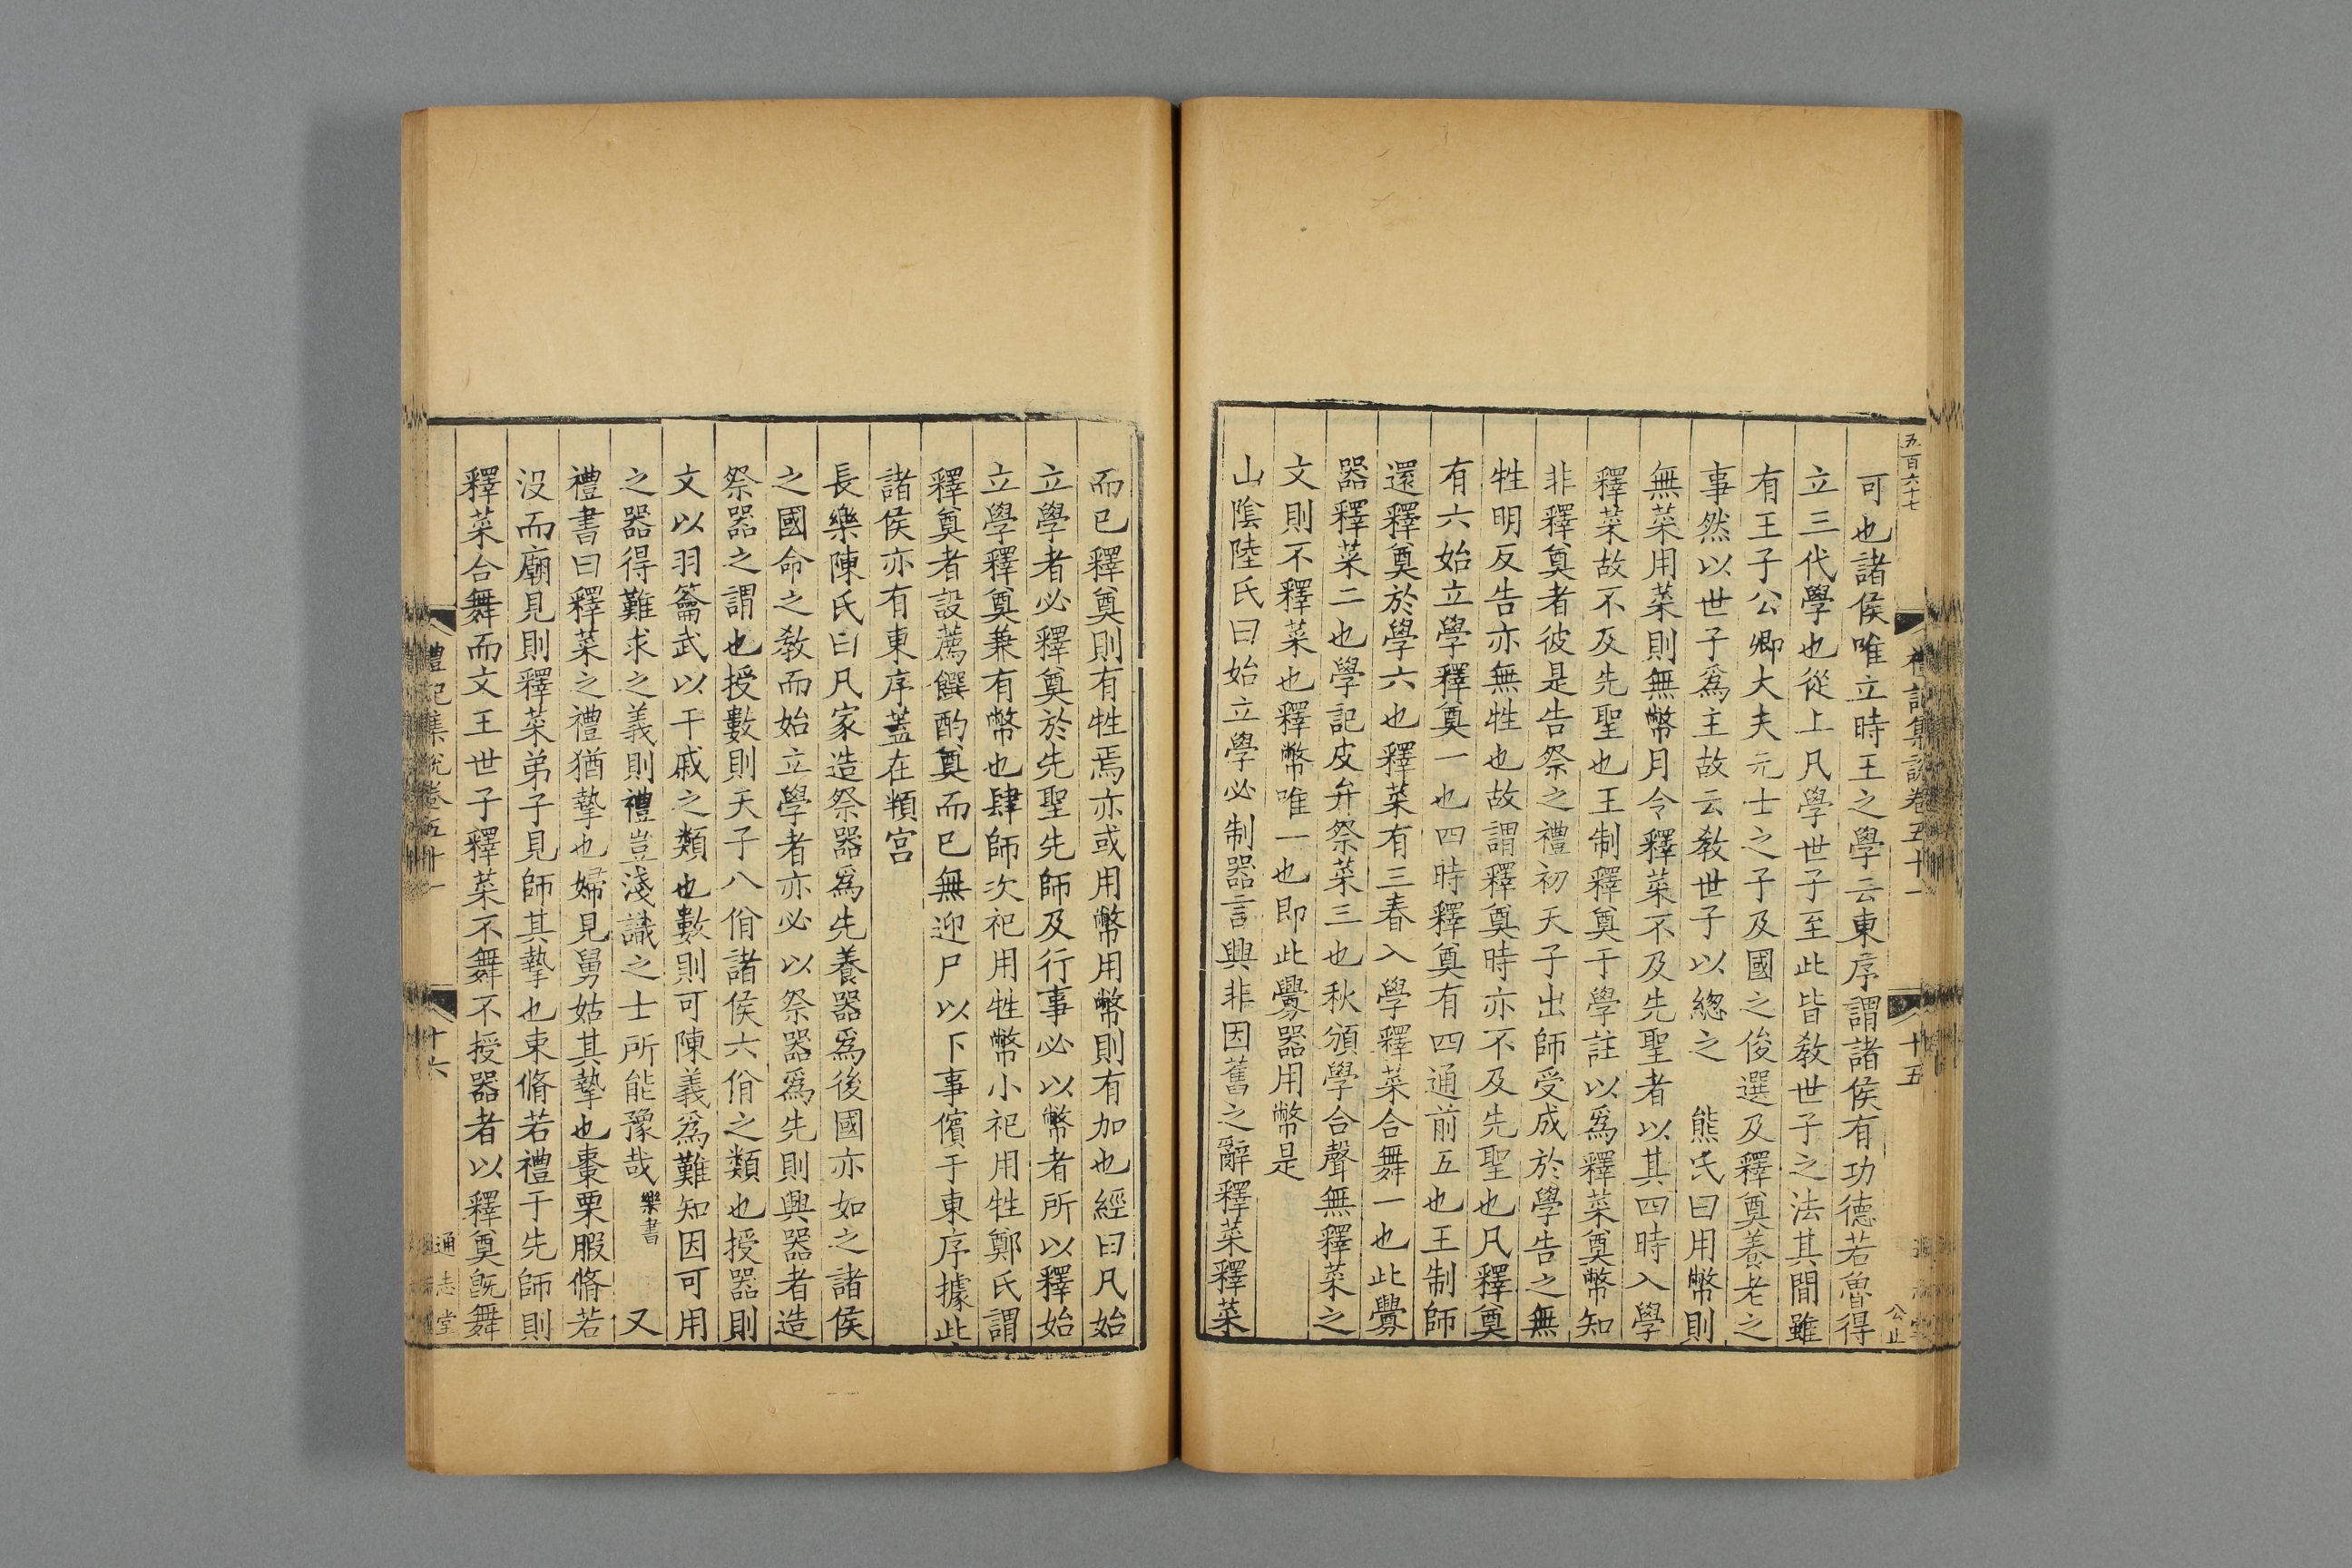 五百六十七
禮記集說卷五十一
十五
公止
可也諸侯唯立時王之學云東序謂諸侯有功德若魯得
立三代學也從上凡學世子至此皆敎世子之法其間雖
有王子公卿大夫元士之子及國之俊選及釋奠養老之
事然以世子爲主故云敎世子以緫之　熊氏曰用幣則
無菜用菜則無幣月令釋菜不及先聖者以其四時入學
釋菜故不及先聖也王制釋奠于學註以爲釋菜奠幣知
非釋奠者彼是告祭之禮初天子出師受成於學告之無
牲明反告亦無牲也故謂釋奠時亦不及先聖也凡釋奠
有六始立學釋奠一也四時釋奠有四通前五也王制師
還釋奠於學六也釋菜有三春入學釋菜合舞一也此釁
器釋菜二也學記皮弁祭菜三也秋頒學合聲無釋菜之
文則不釋菜也釋幣唯一也即此釁器用幣是
山陰陸氏曰始立學必制器言興非因舊之辭釋菜釋菜
而已釋奠則有牲焉亦或用幣用幣則有加也經曰凡始
立學者必釋奠於先聖先師及行事必以幣者所以釋始
立學釋奠兼有幣也肆師次祀用牲幣小祀用牲鄭氏謂
釋奠者設薦饌酌奠而已無迎尸以下事儐于東序據此
諸侯亦有東序蓋在頖宮
長樂陳氏曰凡家造祭器爲先養器爲後國亦如之諸侯
之國命之敎而始立學者亦必以祭器爲先則興器者造
祭器之謂也授數則天子八佾諸侯六佾之類也授器則
文以羽籥武以干戚之類也數則可陳義爲難知因可用
之器得難求之義則禮豈淺識之士所能豫哉樂書　又
禮書曰釋菜之禮猶摯也婦見舅姑其摯也棗栗腶脩若
沒而廟見則釋菜弟子見師其摯也束脩若禮于先師則
釋菜合舞而文王世子釋菜不舞不授器者以釋奠旣舞
禮記集說卷五十一
十六
通志堂